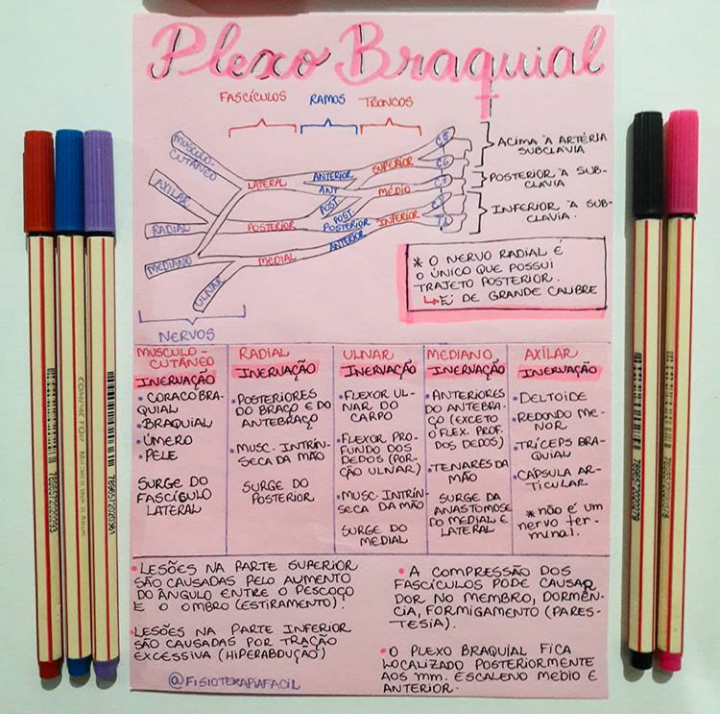 Plexo Braquial
FASCÍCULOS RAMOS TRONCOS
MUSCULO-
CUTÂNEO
AXILAR
RADIAL
MEDIANO
ULNAR
LATERAL
POSTERIOR
MEDIAL
ANTERIOR
ANT
POST
POST
POSTERIOR
ANTERIOR
SUPERIOR
MÉDIO
INFERIOR
C5
C6
C7
C8
T1
ACIMA À ARTÉRIA
SUBCLAVIA
POSTERIOR À SUB-
CLAVIA
INFERIOR À SUB-
CLAVIA.
* O NERVO RADIAL É
O ÚNICO QUE POSSUI
TRAJETO POSTERIOR.
↳ É DE GRANDE CALIBRE
NERVOS
MUSCULO-
CUTÂNEO
INERVAÇÃO
• CORACOBRA-
QUIAL
• BRAQUIAL
• ÚMERO
• PELE
SURGE DO
FASCÍCULO
LATERAL
RADIAL
INERVAÇÃO
• POSTERIORES
DO BRAÇO E DO
ANTEBRAÇO
• MUSC. INTRÍN-
SECA DA MÃO
SURGE DO
POSTERIOR
ULNAR
INERVAÇÃO
• FLEXOR UL-
NAR DO
CARPO
• FLEXOR PRO-
FUNDO DOS
DEDOS (POR-
ÇÃO ULNAR)
• MUSC. INTRÍN-
SECA DA MÃO
SURGE DO
MEDIAL
MEDIANO
INERVAÇÃO
• ANTERIORES
DO ANTEBRA-
ÇO (EXCETO
O FLEX. PROF.
DOS DEDOS)
• TENARES DA
MÃO
SURGE DA
ANASTOMOSE
DO MEDIAL E
LATERAL
AXILAR
INERVAÇÃO
• DELTOIDE
• REDONDO ME-
NOR
• TRÍCEPS BRA-
QUIAL
• CÁPSULA AR-
TICULAR
* não é um
nervo ter-
minal.
• LESÕES NA PARTE SUPERIOR
SÃO CAUSADAS PELO AUMENTO
DO ÂNGULO ENTRE O PESCOÇO
E O OMBRO (ESTIRAMENTO).
• LESÕES NA PARTE INFERIOR
SÃO CAUSADAS POR TRAÇÃO
EXCESSIVA (HIPERABDUÇÃO)
@FISIOTERAPIAFACIL
• A COMPRESSÃO DOS
FASCÍCULOS PODE CAUSAR
DOR NO MEMBRO, DORMÊN-
CIA, FORMIGAMENTO (PARES-
TESIA).
• O PLEXO BRAQUIAL FICA
LOCALIZADO POSTERIORMENTE
AOS mm. ESCALENO MEDIO E
ANTERIOR.